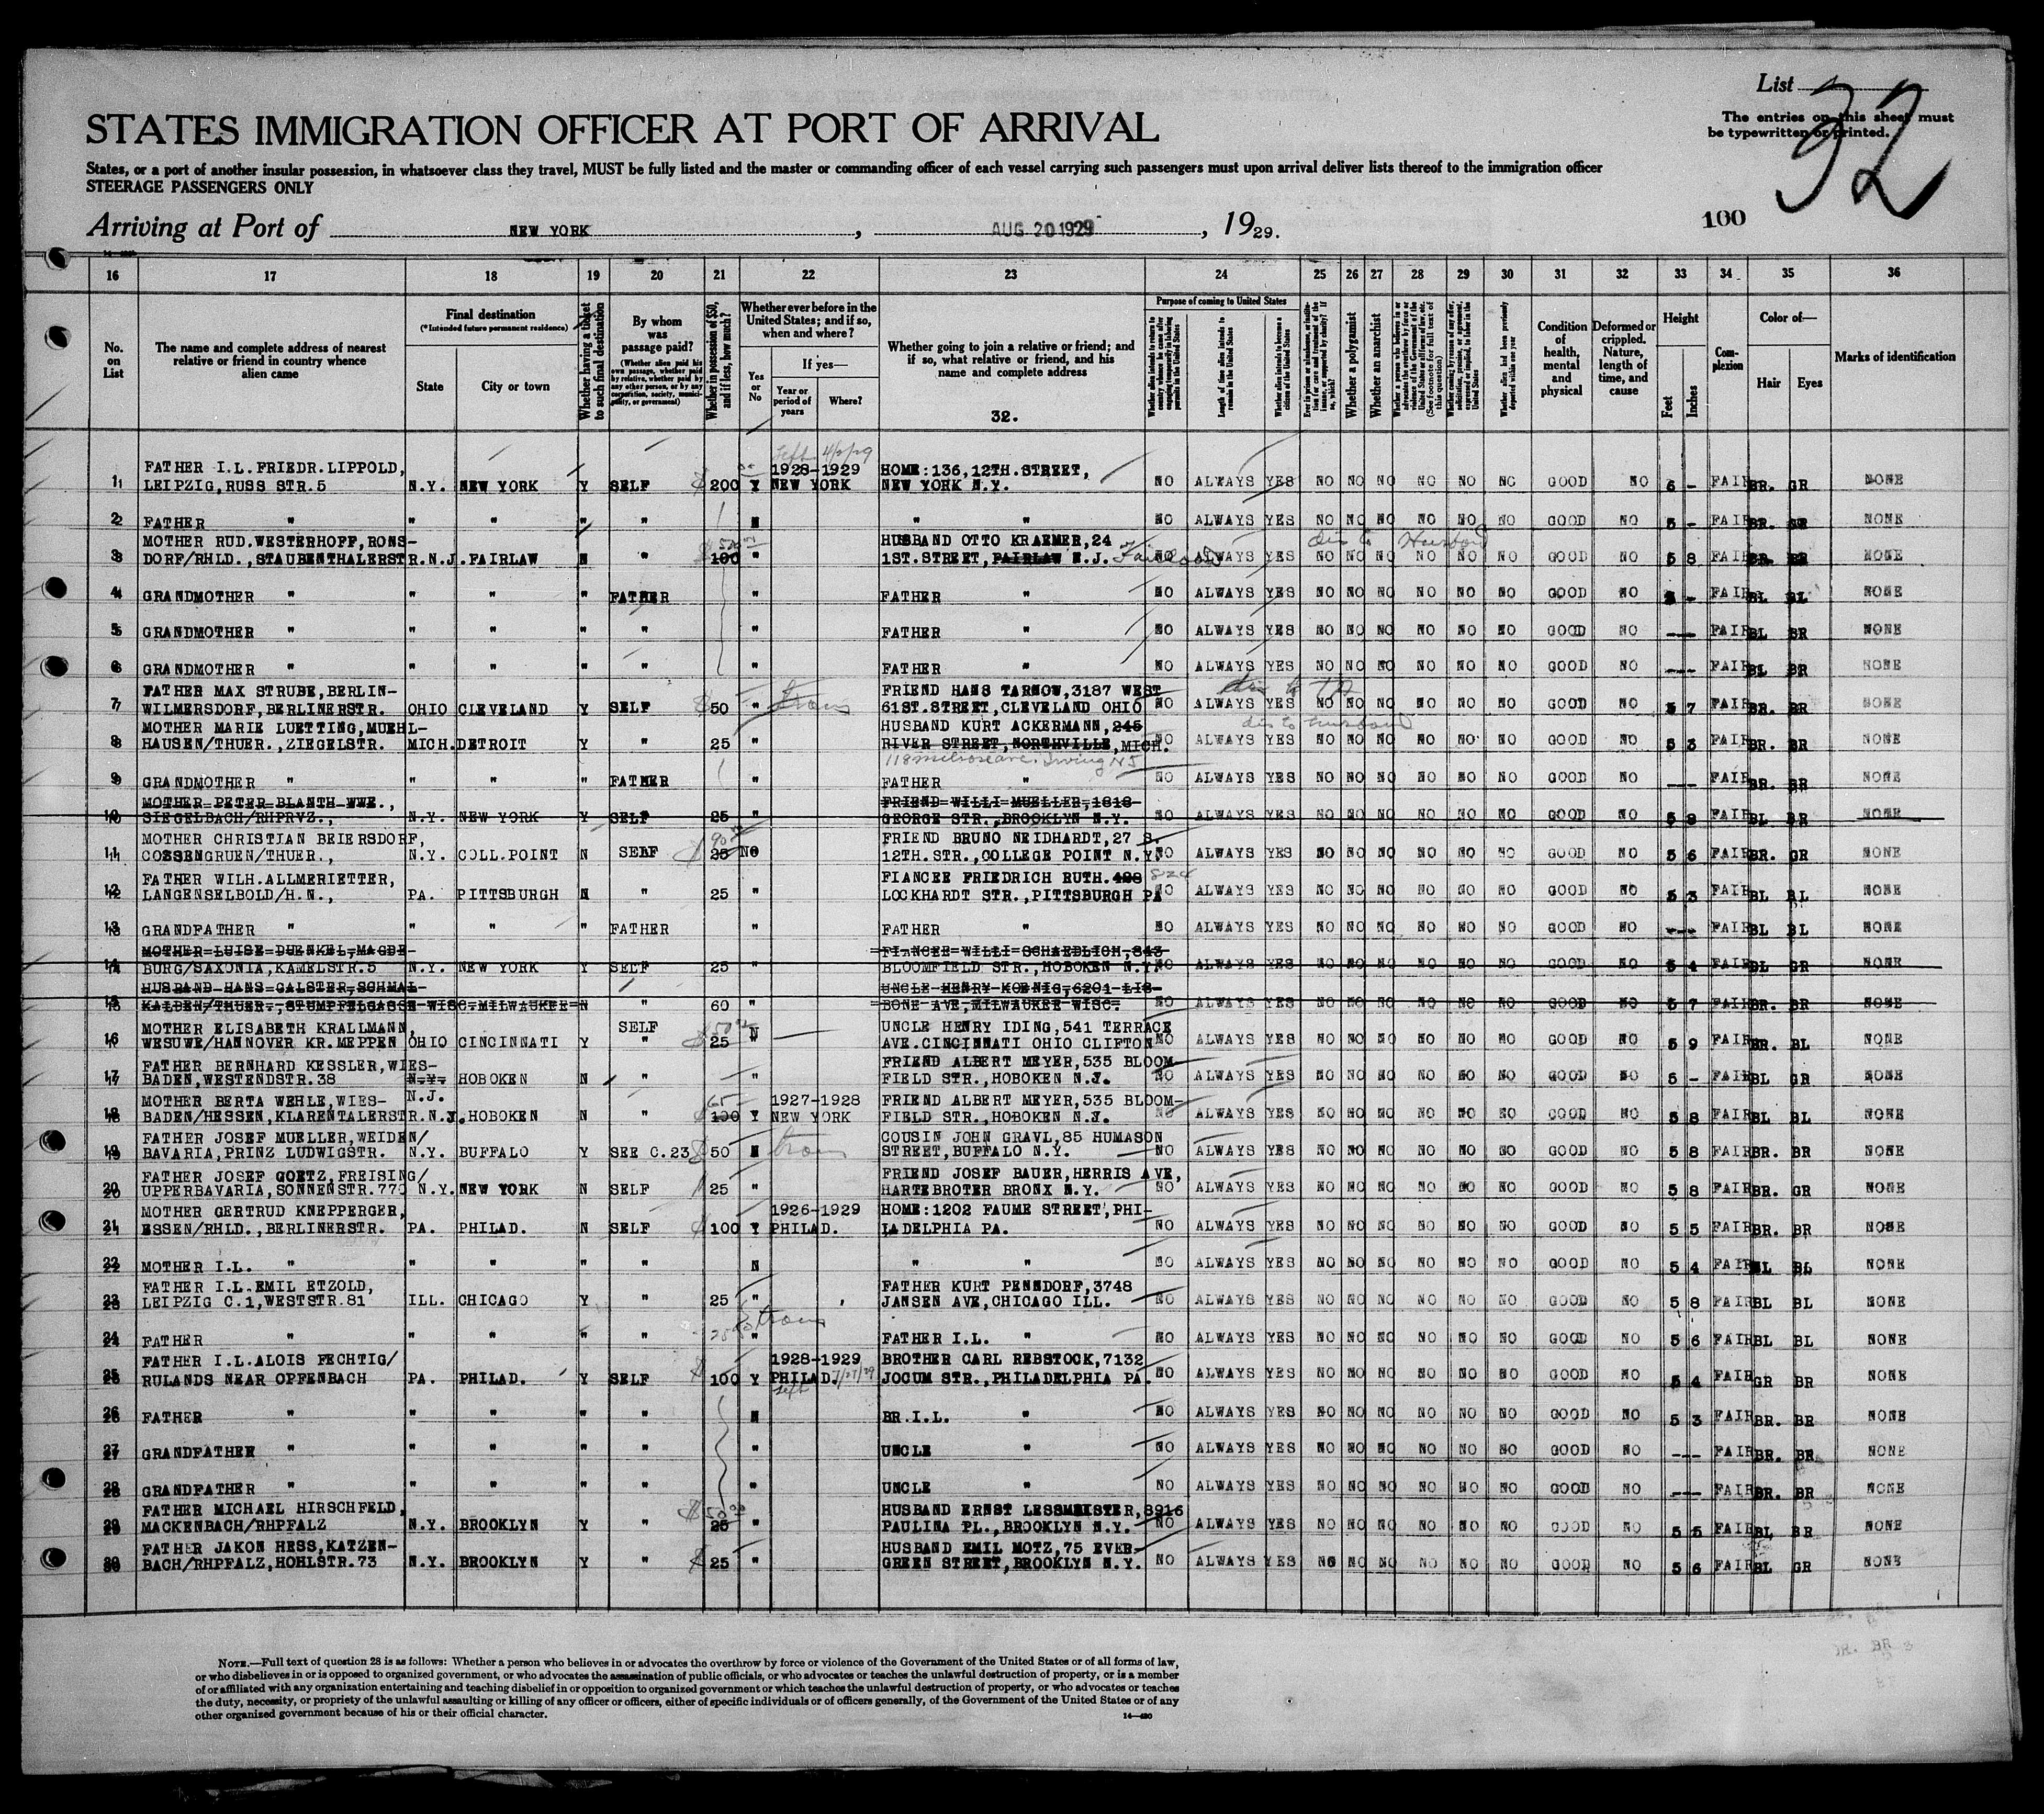 List 32
The entries on this sheet must
be typewritten or printed.
STATES IMMIGRATION OFFICER AT PORT OF ARRIVAL
States, or a port of another insular possession, in whatsoever class they travel, MUST be fully listed and the master or commanding officer of each vessel carrying such passengers must upon arrival deliver lists thereof to the immigration officer
STEERAGE PASSENGERS ONLY
100
Arriving at Port of NEW YORK, AUG 20 1929, 1929.
16 17 18 19 20 21 22 23 24 25 26 27 28 29 30 31 32 33 34 35 36
No. on List
The name and complete address of nearest relative or friend in country whence alien came
Final destination
(*Intended future permanent residence)
State City or town
Whether having a ticket to such final destination
By whom was passage paid?
(Whether alien paid his own passage, whether paid by relative, whether paid by any other person, or by any corporation, society, municipality, or government)
Whether in possession of $50, and if less, how much?
Whether ever before in the United States; and if so, when and where?
Yes or No
If yes—
Year or period of years Where?
Whether going to join a relative or friend; and if so, what relative or friend, and his name and complete address
32.
Purpose of coming to United States
Length of time alien intends to remain in the United States
Whether alien intends to become a citizen of the United States
Whether a polygamist
Whether an anarchist
Condition of health, mental and physical
Deformed or crippled. Nature, length of time, and cause
Height
Feet Inches
Complexion
Color of—
Hair Eyes
Marks of identification
left 4/2/29
FATHER I.L.FRIEDR.LIPPOLD, 1928-1929 HOME:136,12TH.STREET,
1 LEIPZIG,RUSS STR.5 N.Y. NEW YORK Y SELF $ 200 Y NEW YORK NEW YORK N.Y. NO ALWAYS YES NO NO NO NO NO NO GOOD NO 6 - FAIR BR. GR NONE
2 FATHER " " " " " N " " NO ALWAYS YES NO NO NO NO NO NO GOOD NO 5 - FAIR BR. NONE
MOTHER RUD.WESTERHOFF,RONS- HUSBAND OTTO KRAEMER,24
3 DORF/RHLD.,STAUBENTHALERSTR. N.J. FAIRLAW N " 100 " 1ST.STREET,FAIRLAW N.J. NO ALWAYS YES NO NO NO NO NO NO GOOD NO 5 8 FAIR BR. NONE
4 GRANDMOTHER " " " " FATHER " FATHER " NO ALWAYS YES NO NO NO NO NO NO GOOD NO FAIR BL BL NONE
5 GRANDMOTHER " " " " " " FATHER " NO ALWAYS YES NO NO NO NO NO NO GOOD NO --- FAIR BL BR NONE
6 GRANDMOTHER " " " " " " FATHER " NO ALWAYS YES NO NO NO NO NO NO GOOD NO --- FAIR BL BR NONE
FATHER MAX STRUBE,BERLIN- FRIEND HANS TARNOW,3187 WEST
7 WILMERSDORF,BERLINERSTR. OHIO CLEVELAND Y SELF $ 50 " trans 61ST.STREET,CLEVELAND OHIO NO ALWAYS YES NO NO NO NO NO NO GOOD NO 5 7 FAIR BR. BR NONE
dis to husband
MOTHER MARIE LUETTING,MUEHL- HUSBAND KURT ACKERMANN,245
8 HAUSEN/THUER.,ZIEGELSTR. MICH. DETROIT Y " 25 " RIVER STREET,NORTHVILLE,MICH. NO ALWAYS YES NO NO NO NO NO NO GOOD NO 5 3 FAIR BR. BR NONE
118 Melrose ave. Irving NJ
9 GRANDMOTHER " " " " FATHER " FATHER " NO ALWAYS YES NO NO NO NO NO NO GOOD NO --- FAIR BR. BR NONE
MOTHER PETER BLANTH WWE., FRIEND WILLI MUELLER,1818
10 SIEGELBACH/RHPRVZ., N.Y. NEW YORK Y SELF 25 " GEORGE STR.,BROOKLYN N.Y. NO ALWAYS YES NO NO NO NO NO NO GOOD NO 5 8 FAIR BL BR NONE
MOTHER CHRISTIAN BEIERSDORF, FRIEND BRUNO NEIDHARDT,27 S.
11 COSSENGRUEN/THUER., N.Y. COLL.POINT N SELF $ 25 NO 12TH.STR.,COLLEGE POINT N.Y. NO ALWAYS YES NO NO NO NO NO NO GOOD NO 5 6 FAIR BR. GR NONE
FATHER WILH.ALLMERIETTER, FIANCEE FRIEDRICH RUTH.428 824
12 LANGENSELBOLD/H.N., PA. PITTSBURGH N " 25 " LOCKHARDT STR.,PITTSBURGH PA NO ALWAYS YES NO NO NO NO NO NO GOOD NO 5 3 FAIR BL BL NONE
13 GRANDFATHER " " " " FATHER " FATHER " NO ALWAYS YES NO NO NO NO NO NO GOOD NO --- FAIR BL BL NONE
MOTHER LUISE DUENKEL,MAGDE- FIANCEE WILLI SCHAEDLICH,843
14 BURG/SAXONIA,KAMELSTR.5 N.Y. NEW YORK Y SELF 25 " BLOOMFIELD STR.,HOBOKEN N.Y. NO ALWAYS YES NO NO NO NO NO NO GOOD NO 5 4 FAIR BL GR NONE
HUSBAND HANS GALSTER,SCHMAL- UNCLE HENRY KOENIG,6201 LIS-
15 KALDEN/THUER.,STUMPFELGASSE WISC. MILWAUKEE N " 60 " BONE AVE,MILWAUKEE WISC. NO ALWAYS YES NO NO NO NO NO NO GOOD NO 5 7 FAIR BR. BR NONE
MOTHER ELISABETH KRALLMANN, SELF UNCLE HENRY IDING,541 TERRACE
16 WESUWE/HANNOVER KR.MEPPEN OHIO CINCINNATI Y " 25 N AVE.CINCINNATI OHIO CLIFTON NO ALWAYS YES NO NO NO NO NO NO GOOD NO 5 9 FAIR BR. BL NONE
FATHER BERNHARD KESSLER,WIES- FRIEND ALBERT MEYER,535 BLOOM-
17 BADEN,WESTENDSTR.38 N.Y. HOBOKEN N " " FIELD STR.,HOBOKEN N.J. NO ALWAYS YES NO NO NO NO NO NO GOOD NO 5 - FAIR BL GR NONE
N.J.
MOTHER BERTA WEHLE,WIES- 65 1927-1928 FRIEND ALBERT MEYER,535 BLOOM-
18 BADEN/HESSEN,KLARENTALERSTR. N.J. HOBOKEN N " $ 100 Y NEW YORK FIELD STR.,HOBOKEN N.J. NO ALWAYS YES NO NO NO NO NO NO GOOD NO 5 8 FAIR BL BL NONE
FATHER JOSEF MUELLER,WEIDEN/ COUSIN JOHN GRAVL,85 HUMASON
19 BAVARIA,PRINZ LUDWIGSTR. N.Y. BUFFALO Y SEE C.23 $ 50 N trans STREET,BUFFALO N.Y. NO ALWAYS YES NO NO NO NO NO NO GOOD NO 5 8 FAIR BR. BR NONE
FATHER JOSEF GOETZ,FREISING/ FRIEND JOSEF BAUER,HERRIS AVE,
20 UPPERBAVARIA,SONNENSTR.775 N.Y. NEW YORK N SELF 25 " HARTEBROTER BRONX N.Y. NO ALWAYS YES NO NO NO NO NO NO GOOD NO 5 8 FAIR BR. GR NONE
MOTHER GERTRUD KNEPPERGER, 1926-1929 HOME:1202 FAUME STREET,PHI-
21 ESSEN/RHLD.,BERLINERSTR. PA. PHILAD. N SELF $ 100 Y PHILAD. LADELPHIA PA. NO ALWAYS YES NO NO NO NO NO NO GOOD NO 5 5 FAIR BR. BR NONE
22 MOTHER I.L. " " " " " N " " NO ALWAYS YES NO NO NO NO NO NO GOOD NO 5 4 FAIR BL BL NONE
FATHER I.L.EMIL ETZOLD, FATHER KURT PENNDORF,3748
23 LEIPZIG C.1,WESTSTR.81 ILL. CHICAGO Y " 25 " JANSEN AVE,CHICAGO ILL. NO ALWAYS YES NO NO NO NO NO NO GOOD NO 5 8 FAIR BL BL NONE
trans
24 FATHER " " " " " 25 " FATHER I.L. " NO ALWAYS YES NO NO NO NO NO NO GOOD NO 5 6 FAIR BL BL NONE
FATHER I.L.ALOIS FECHTIG/ 1928-1929 BROTHER CARL REBSTOCK,7132
25 RULANDS NEAR OPFENBACH PA. PHILAD. Y SELF $ 100 Y PHILAD. JOCUM STR.,PHILADELPHIA PA. NO ALWAYS YES NO NO NO NO NO NO GOOD NO 5 4 FAIR GR BR NONE
left
26 FATHER " " " " " N BR.I.L. " NO ALWAYS YES NO NO NO NO NO NO GOOD NO 5 3 FAIR BR. BR NONE
27 GRANDFATHER " " " " " " UNCLE " NO ALWAYS YES NO NO NO NO NO NO GOOD NO --- FAIR BR. BR NONE
28 GRANDFATHER " " " " " " UNCLE " NO ALWAYS YES NO NO NO NO NO NO GOOD NO --- FAIR BR. BR NONE
FATHER MICHAEL HIRSCHFELD, $50 HUSBAND ERNST LESSMEISTER,8916
29 MACKENBACH/RHPFALZ N.Y. BROOKLYN Y " 25 " PAULINA PL.,BROOKLYN N.Y. NO ALWAYS YES NO NO NO NO NO NO GOOD NO 5 5 FAIR BL BR NONE
FATHER JAKON HESS,KATZEN- HUSBAND EMIL MOTZ,75 EVER-
30 BACH/RHPFALZ,HOHLSTR.73 N.Y. BROOKLYN Y " $ 25 " GREEN STREET,BROOKLYN N.Y. NO ALWAYS YES NO NO NO NO NO NO GOOD NO 5 6 FAIR BL GR NONE
NOTE.—Full text of question 28 is as follows: Whether a person who believes in or advocates the overthrow by force or violence of the Government of the United States or of all forms of law,
or who disbelieves in or is opposed to organized government, or who advocates the assassination of public officials, or who advocates or teaches the unlawful destruction of property, or is a member
of or affiliated with any organization entertaining and teaching disbelief in or opposition to organized government or which teaches the unlawful destruction of property, or who advocates or teaches
the duty, necessity, or propriety of the unlawful assaulting or killing of any officer or officers, either of specific individuals or of officers generally, of the Government of the United States or of any
other organized government because of his or their official character.
14—420